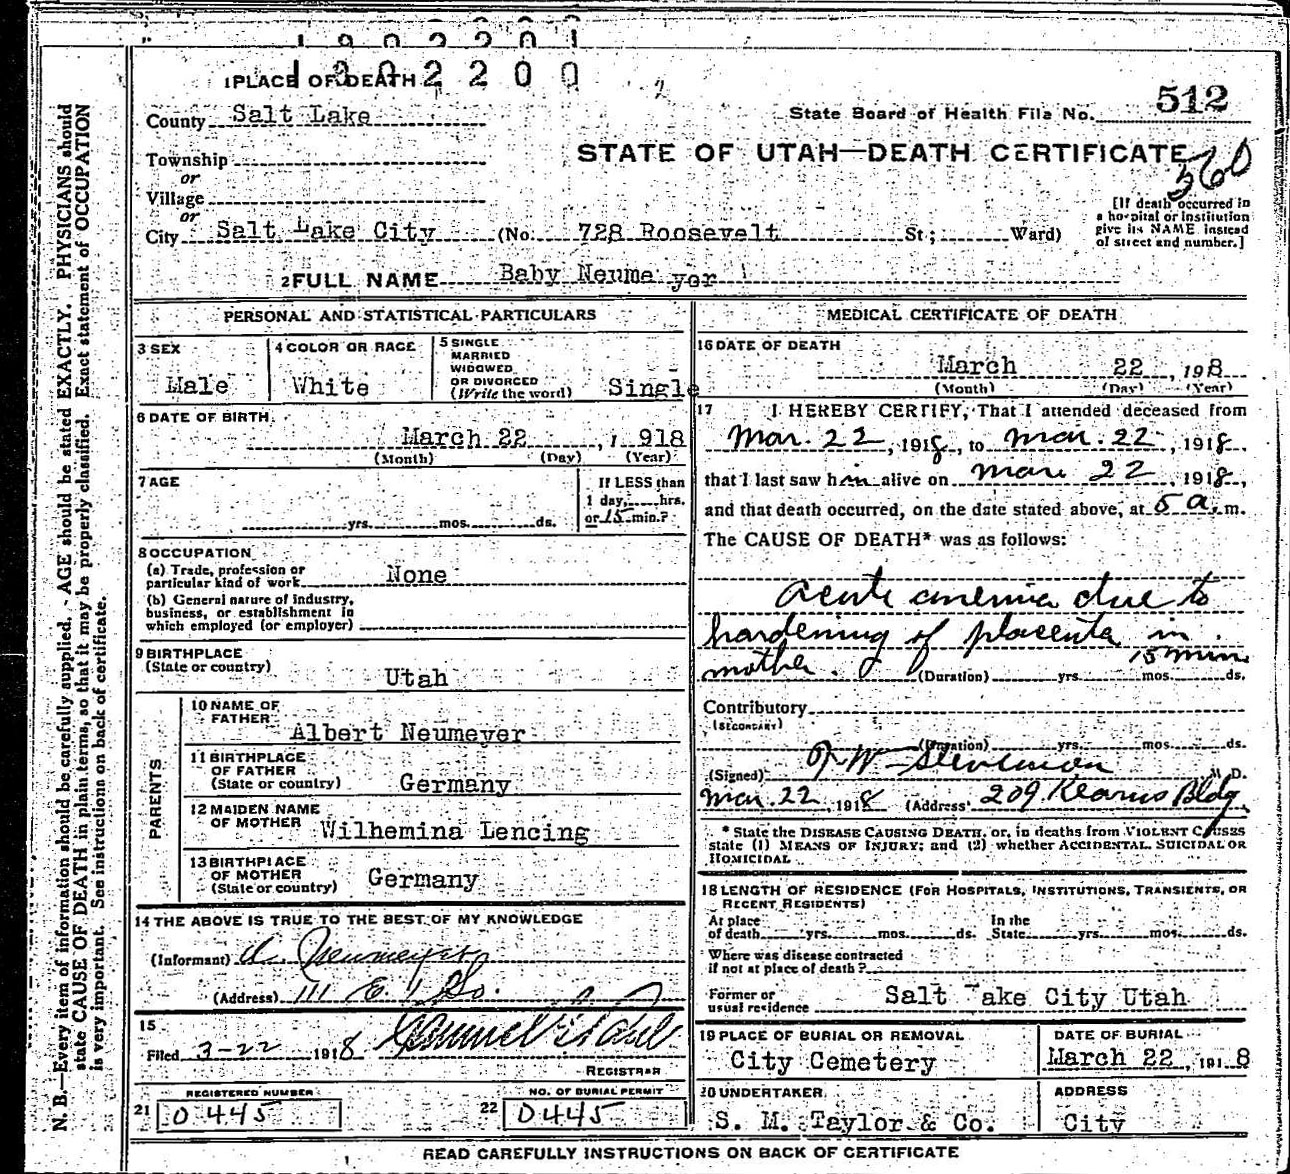 1902201
1902200
1 PLACE OF DEATH
County Salt Lake
State Board of Health File No. 512
Township
or
Village
or
STATE OF UTAH—DEATH CERTIFICATE
360
[If death occurred in
a hospital or institution
give its NAME instead
of street and number.]
City Salt Lake City (No. 728 Roosevelt St.; Ward)
2 FULL NAME Baby Neumeyer
PERSONAL AND STATISTICAL PARTICULARS
3 SEX
Male
4 COLOR OR RACE
White
5 SINGLE
MARRIED
WIDOWED
OR DIVORCED
(Write the word) Single
6 DATE OF BIRTH
March 22, 1918
(Month) (Day) (Year)
7 AGE
yrs. mos. ds.
If LESS than
1 day, hrs.
or 15 min.?
8 OCCUPATION
(a) Trade, profession or
particular kind of work None
(b) General nature of industry,
business, or establishment in
which employed (or employer)
9 BIRTHPLACE
(State or country) Utah
PARENTS
10 NAME OF
FATHER Albert Neumeyer
11 BIRTHPLACE
OF FATHER
(State or country) Germany
12 MAIDEN NAME
OF MOTHER Wilhemina Lencing
13 BIRTHPLACE
OF MOTHER
(State or country) Germany
14 THE ABOVE IS TRUE TO THE BEST OF MY KNOWLEDGE
(Informant) A. Neumeyer
(Address) 111 E 1 So.
15
Filed 3-22 1918
REGISTRAR
REGISTERED NUMBER
21 0445
NO. OF BURIAL PERMIT
22 0445
MEDICAL CERTIFICATE OF DEATH
16 DATE OF DEATH
March 22, 1918
(Month) (Day) (Year)
17 I HEREBY CERTIFY, That I attended deceased from
Mar. 22, 1918, to Mar. 22, 1918
that I last saw him alive on Mar 22, 1918,
and that death occurred, on the date stated above, at 5 a. m.
The CAUSE OF DEATH* was as follows:
Acute anemia due to
hardening of placenta in
mother. 15 min
(Duration) yrs. mos. ds.
Contributory
(SECONDARY)
(Duration) yrs. mos. ds.
(Signed) Stevenson M. D.
Mar. 22, 1918 (Address) 209 Kearns Bldg
* State the DISEASE CAUSING DEATH, or, in deaths from VIOLENT CAUSES
state (1) MEANS OF INJURY; and (2) whether ACCIDENTAL, SUICIDAL OR
HOMICIDAL
18 LENGTH OF RESIDENCE (FOR HOSPITALS, INSTITUTIONS, TRANSIENTS, OR
RECENT RESIDENTS)
At place
of death yrs. mos. ds.
In the
State yrs. mos. ds.
Where was disease contracted
if not at place of death?
Former or
usual residence Salt Lake City Utah
19 PLACE OF BURIAL OR REMOVAL
City Cemetery
DATE OF BURIAL
March 22, 1918
20 UNDERTAKER
S. M. Taylor & Co.
ADDRESS
City
READ CAREFULLY INSTRUCTIONS ON BACK OF CERTIFICATE
N. B.—Every item of information should be carefully supplied. AGE should be stated EXACTLY. PHYSICIANS should
state CAUSE OF DEATH in plain terms, so that it may be properly classified. Exact statement of OCCUPATION
is very important. See instructions on back of certificate.